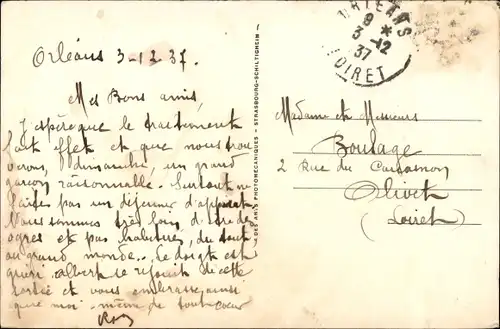 Orléans 3-12 37.
Mes Bons amis,
J'espère que le traitement
fait effet et que nous trou
verons, dimanche, un grand
garçon raisonnable. Surtout ne
faites pas un déjeuner d'apparat
Nous sommes très loin, d'être des
ogres et pas habitués, du tout
au grand monde. Le doigt est
guéri. Albert se réjouit de cette
sortie et vous embrasse, ainsi
que moi-même de tout cœur
DES ARTS PHOTOMÉCANIQUES - STRASBOURG-SCHILTIGHEIM -
ORLEANS
9 *
3-12
37
LOIRET
Madame et Messieurs
Boulage
2 Rue du
Olivet
(Loiret)